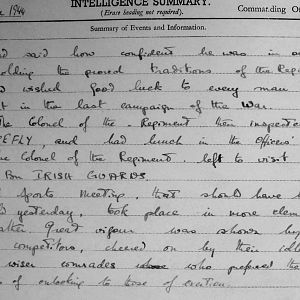 1944
INTELLIGENCE SUMMARY.
(Erase heading not required).
Commanding O
Summary of Events and Information.
said how confident he was in ou
olding the proud traditions of the Reg
wished good luck to every man
in the last campaign of the War.
The Colonel of the Regiment then inspected
EFLY, and had lunch in the Officers'
e Colonel of the Regiment left to visit
Bn IRISH GUARDS.
Sports Meeting, that should have b
ld yesterday, took place in more clem
ather. Great vigour was shown by
competitors, cheered on by their
wiser comrades who preferred the
s of to those of